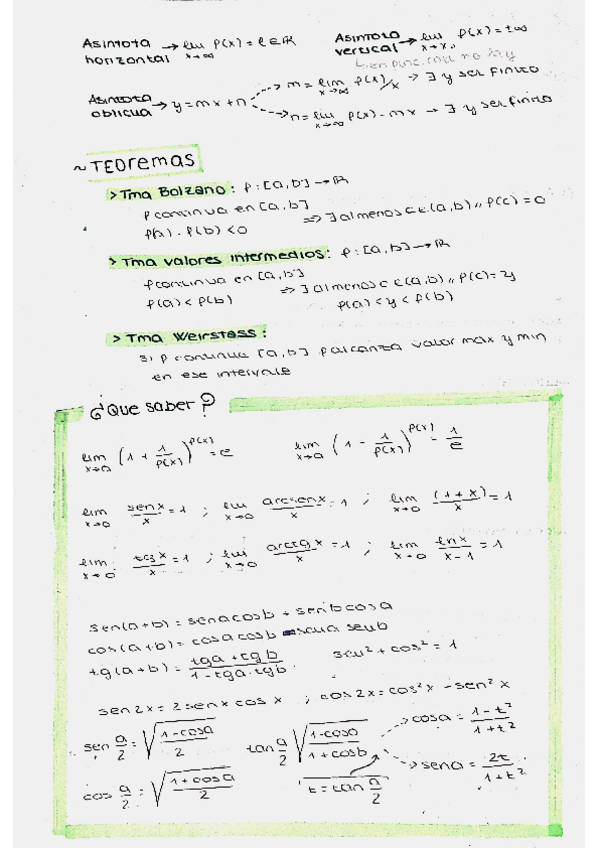 Asíntota horizontal → lim f(x) = l ∈ ℝ
x→∞
Asíntota vertical → lim f(x) = ±∞
x→x₀
Asíntota oblicua → y = mx + n
m = lim f(x)/x → ∃ y ser finito
x→∞
n = lim f(x) - mx → ∃ y ser finito
x→∞
~ TEOremas
> Tma Bolzano: f: [a,b] → ℝ
f continua en [a,b]
f(a) · f(b) < 0 ⇒ ∃ al menos c ∈ (a,b) // f(c) = 0
> Tma valores intermedios: f: [a,b] → ℝ
f continua en [a,b]
f(a) < f(b) ⇒ ∃ al menos c ∈ (a,b) // f(c) = y
f(a) < y < f(b)
> Tma Weirstass:
si f continua [a,b] f alcanza valor max y min
en ese intervalo
¿Que saber?
lim (1 + 1/f(x))^f(x) = e lim (1 - 1/f(x))^f(x) = 1/e
x→∞ x→∞
lim sen x/x = 1 ; lim arcsen x/x = 1 ; lim (1+x)/x = 1
x→0 x→0 x→0
lim tg x/x = 1 ; lim arctg x/x = 1 ; lim ln x/x-1 = 1
x→0 x→0 x→0
sen(a+b) = sena cosb + senb cosa
cos(a+b) = cosa cosb - sena senb
tg(a+b) = tga + tgb / 1 - tga · tgb sen² + cos² = 1
sen 2x = 2 sen x cos x ; cos 2x = cos² x - sen² x
sen a/2 = √(1-cosa / 2) tan a/2 √(1-cosa / 1+cosb) → cosa = 1-t² / 1+t²
cos a/2 = √(1+cosa / 2) t = tan a/2 → sena = 2t / 1+t²